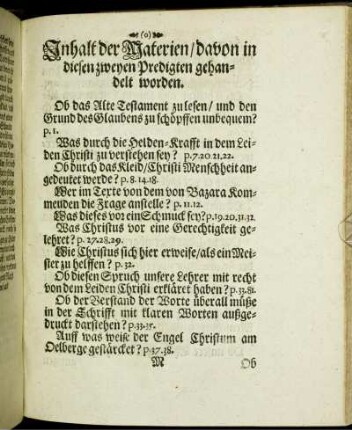 (o)
Inhalt der Materien / davon in
diesen zweyen Predigten gehan-
delt worden.
Ob das Alte Testament zu lesen / und den
Grund des Glaubens zu schöpffen unbequem?
p. 1.
Was durch die Helden-Krafft in dem Lei-
den Christi zu verstehen sey? p. 7. 20. 21. 22.
Ob durch das Kleid / Christi Menschheit an-
gedeutet werde? p. 8. 14. 18.
Wer im Texte von dem von Bazara Kom-
menden die Frage anstelle? p. 11. 12.
Was dieses vor ein Schmuck sey? p. 19. 20. 31. 32.
Was Christus vor eine Gerechtigkeit ge-
lehret? p. 27. 28. 29.
Wie Christus sich hier erweise / als ein Mei-
ster zu helffen? p. 32.
Ob diesen Spruch unsere Lehrer mit recht
von dem Leiden Christi erkläret haben? p. 33. 81.
Ob der Verstand der Worte überall müße
in der Schrifft mit klaren Worten außge-
druckt darstehen? p. 33-35.
Auff was weise der Engel Christum am
Oelberge gestärcket? p. 37. 38.
M Ob